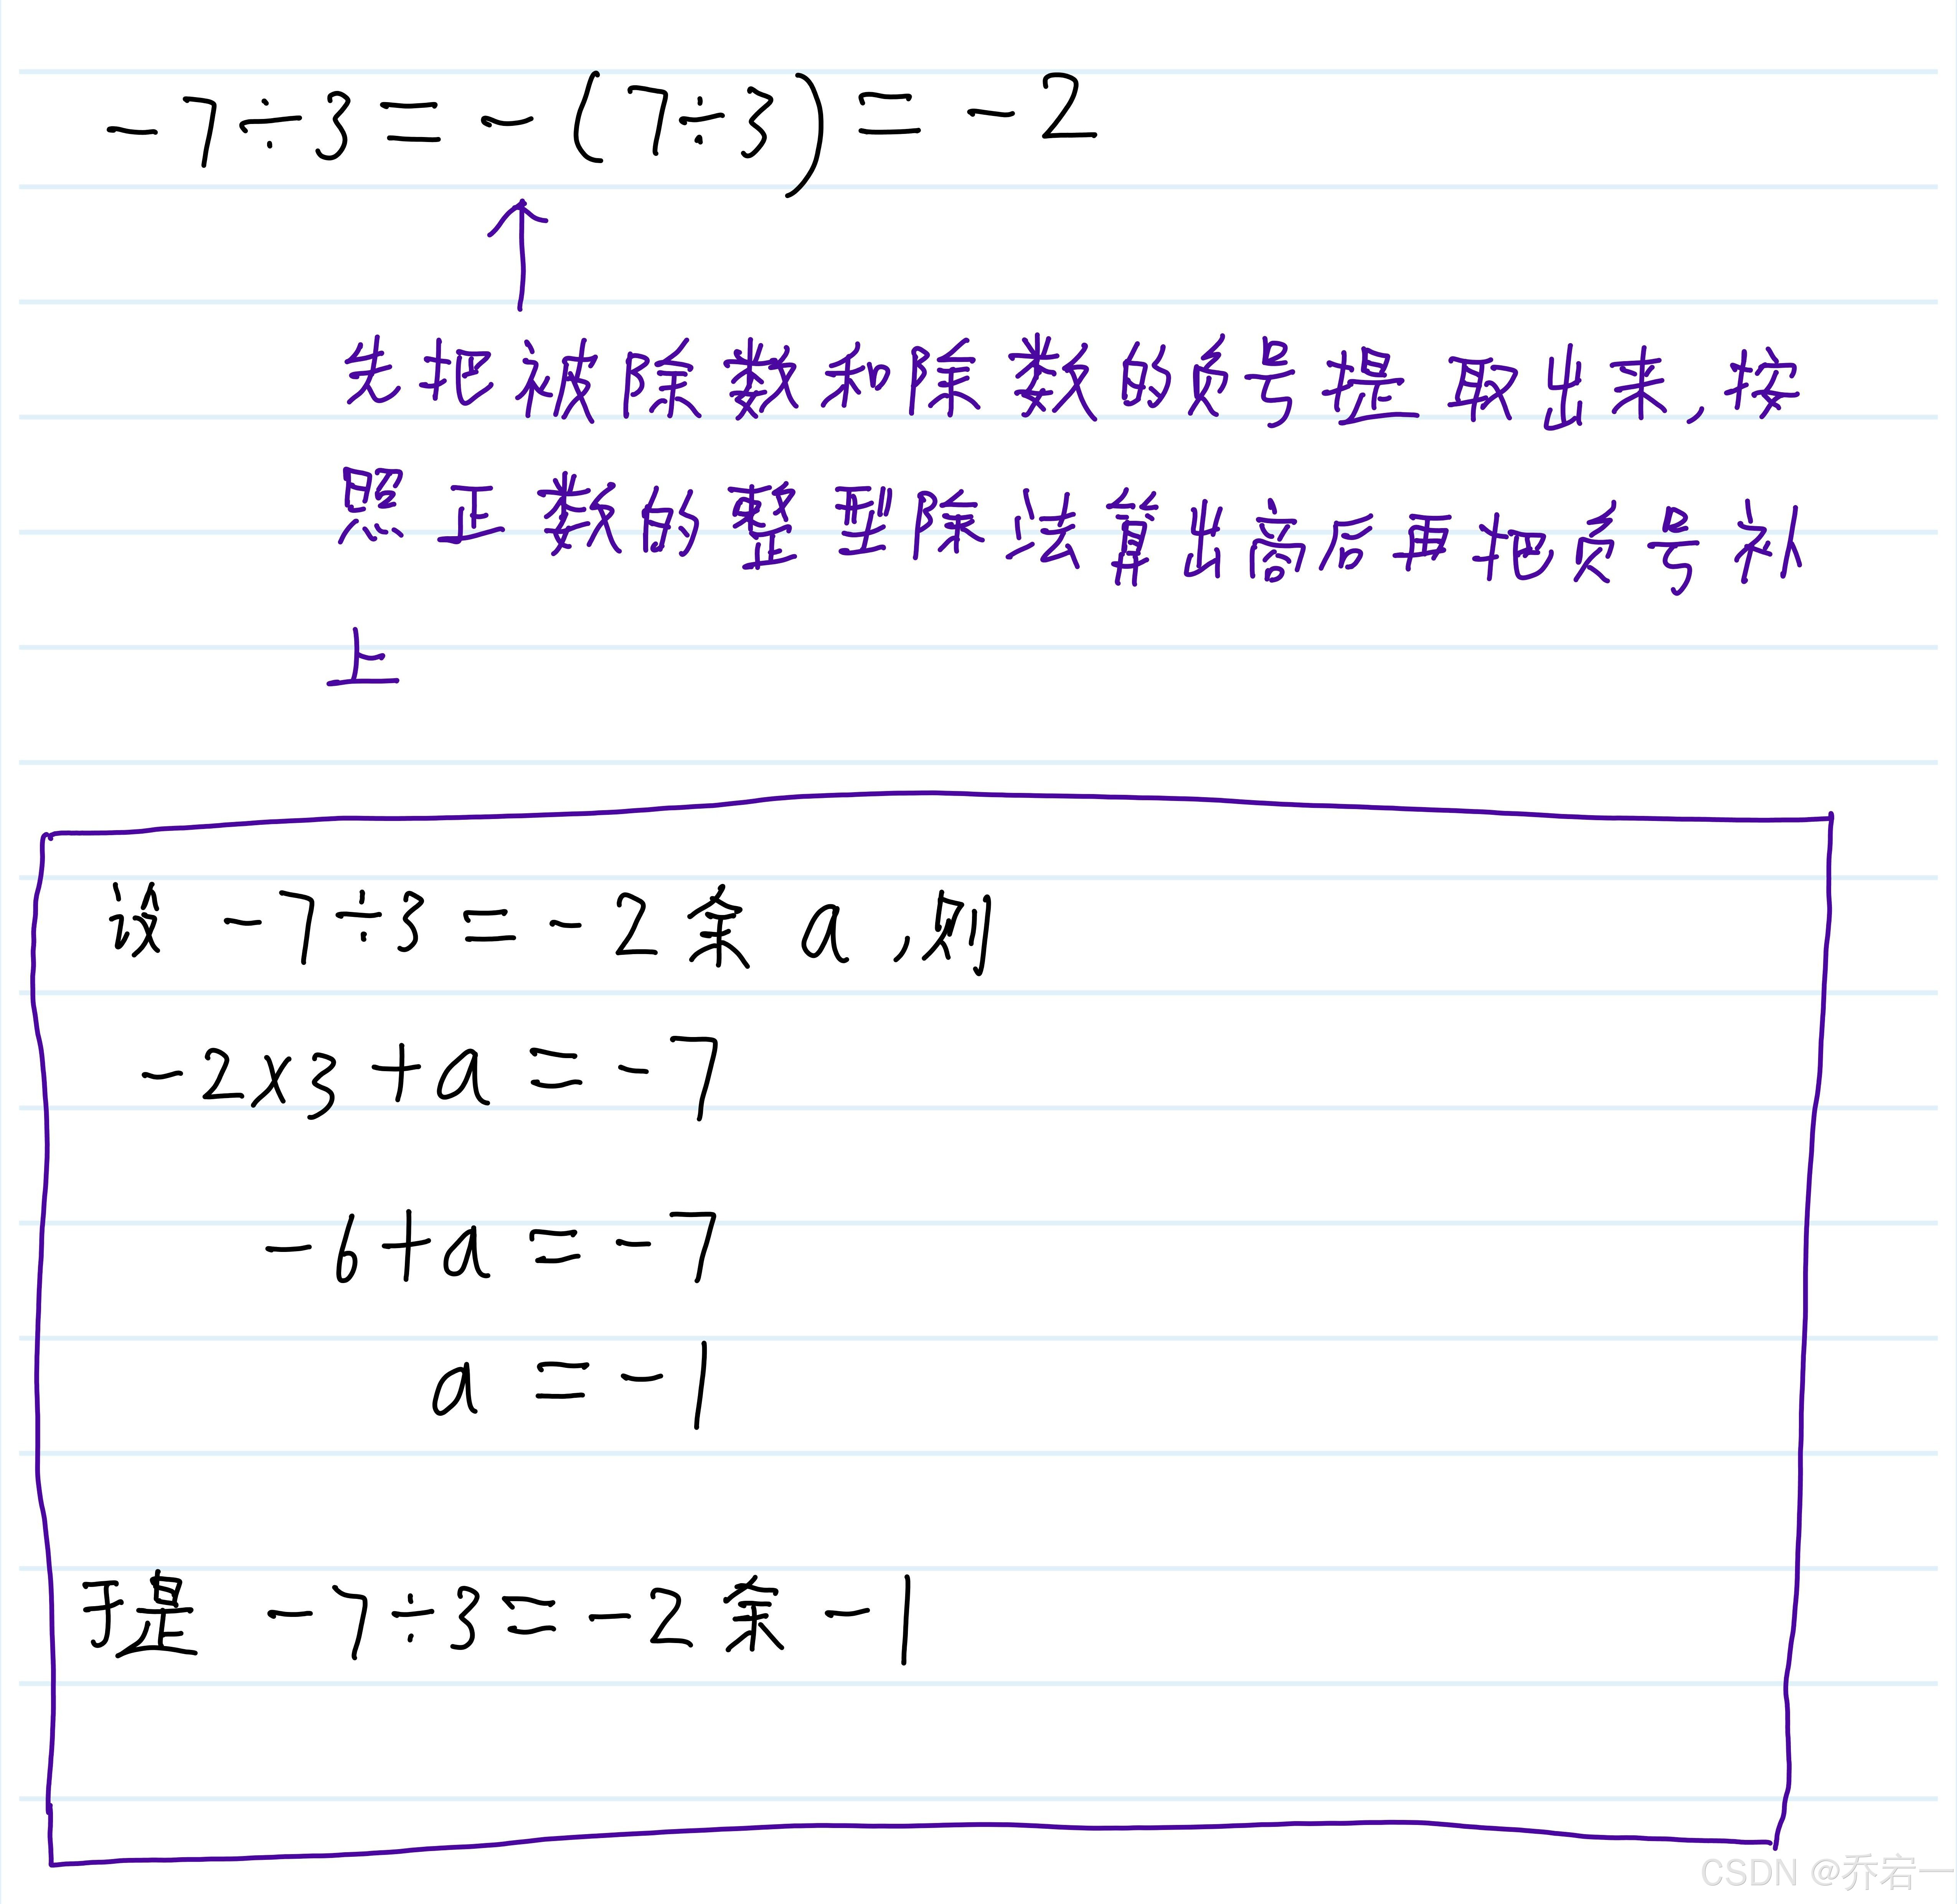 -7÷3=-(7÷3)=-2
↑
先把被除数和除数的负号提取出来,按
照正数的整型除法算出商后再把负号补
上
设 -7÷3=-2余a,则
-2×3+a=-7
-6+a=-7
a=-1
于是 -7÷3=-2余-1
CSDN @乔宕一